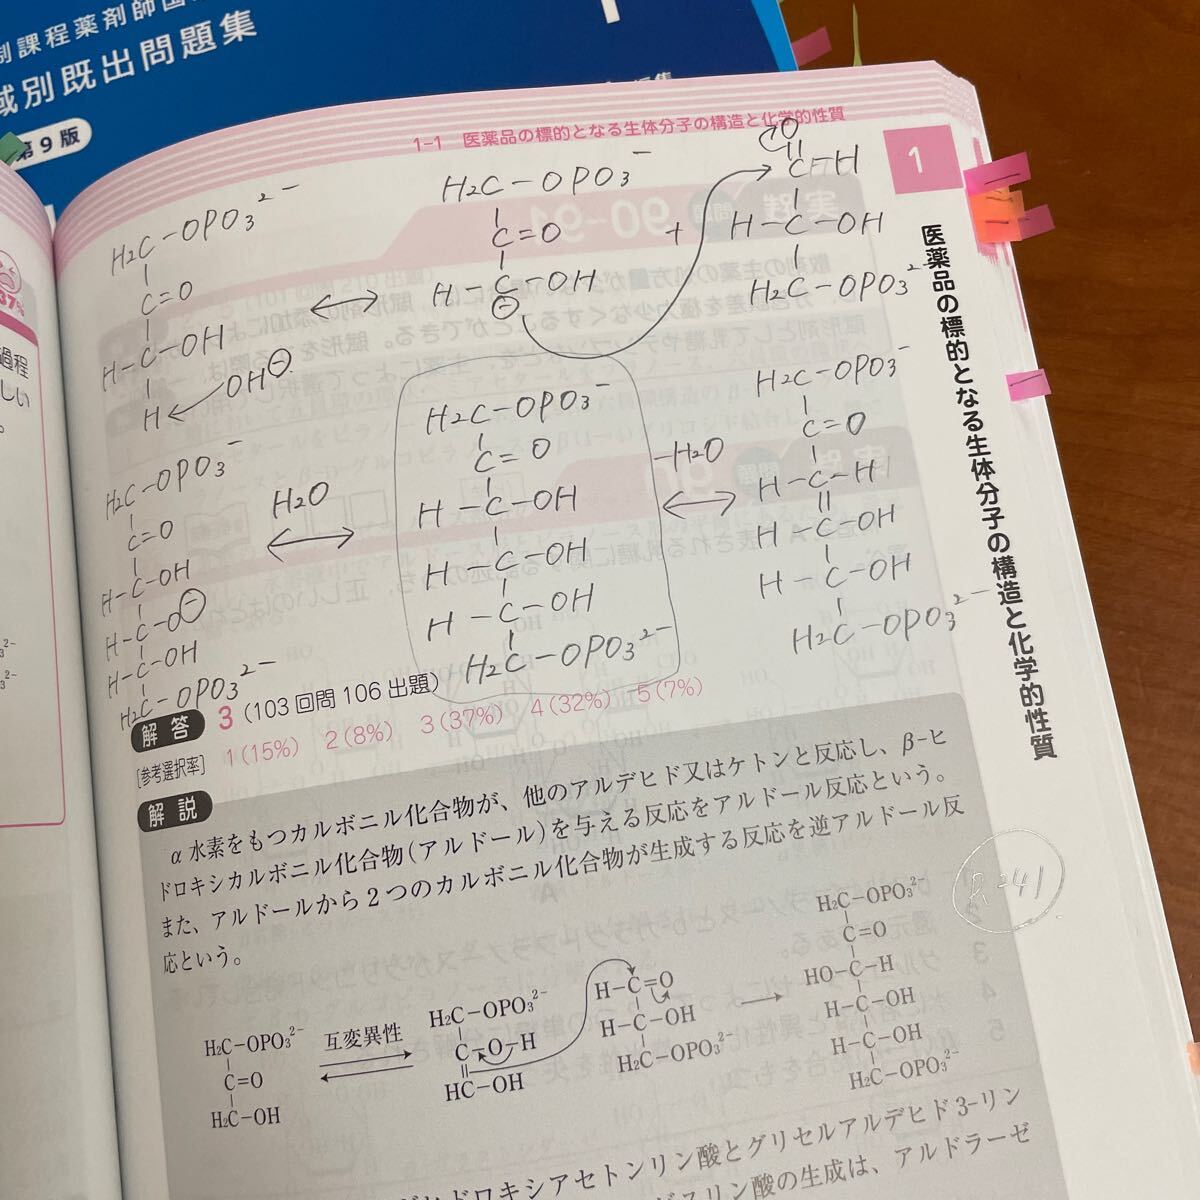 制課程薬剤師国
域別既出問題集
第9版
1-1 医薬品の標的となる生体分子の構造と化学的性質
1
医薬品の標的となる生体分子の構造と化学的性質
37%
過程
しい
H₂C-OPO₃²⁻
C=O
H-C-OH
H
OH⊖
H₂C-OPO₃⁻
C=O
H-C-OH
⊖
+
O
C-H
H-C-OH
H₂C-OPO₃²⁻
H₂C-OPO₃⁻
C=O
C-OH
H-C-O⊖
H-C-OH
H₂C-OPO₃²⁻
H₂O
H₂C-OPO₃⁻
C=O
H-C-OH
H-C-OH
H-C-OH
H₂C-OPO₃²⁻
-H₂O
H₂C-OPO₃⁻
C=O
H-C-H
H-C-OH
H-C-OH
H₂C-OPO₃²⁻
解答 3(103回問106出題)
[参考選択率] 1(15%) 2(8%) 3(37%) 4(32%) 5(7%)
解説
α水素をもつカルボニル化合物が、他のアルデヒド又はケトンと反応し、β-ヒ
ドロキシカルボニル化合物(アルドール)を与える反応をアルドール反応という。
また、アルドールから2つのカルボニル化合物が生成する反応を逆アルドール反
応という。
P.241
H₂C-OPO₃²⁻
C=O
H₂C-OH
互変異性
H₂C-OPO₃²⁻
C-O-H
HC-OH
H-C=O
H-C-OH
H₂C-OPO₃²⁻
H₂C-OPO₃²⁻
C=O
HO-C-H
H-C-OH
H-C-OH
H₂C-OPO₃²⁻
ヒドロキシアセトンリン酸とグリセルアルデヒド3-リン
スリン酸の生成は、アルドラーゼ